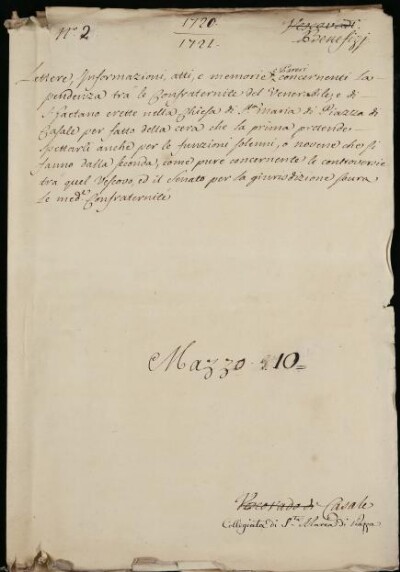 N.º 2.
1720.
1721.
Vescovadi
Benefizj
Lettere, Informazioni, atti, e memorie diverse concernenti la
pendenza trà le Confraternite del Venerabile, e di
S. Gaetano erette nella Chiesa di S.ta Maria di Piazza di
Casale per fatto della cera che la prima pretende
spettarli anche per le funzioni solenni, o novene che si
fanno dalla seconda, come pure concernente le controversie
trà quel Vescovo, ed il Senato per la giurisdizione sovra
le med.e Confraternite
Mazzo 10=
Vescovado di Casale
Collegiata di S.ta Maria di Piazza